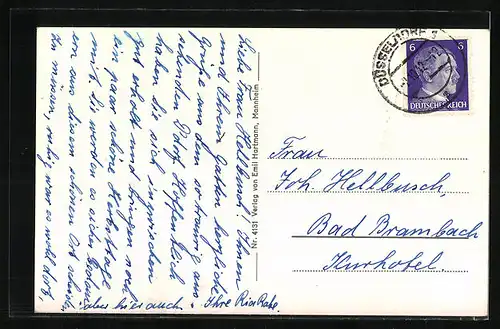 Liebe Frau Hellbusch! Ihnen
und Ihrem Gatten herzliche
Grüße aus dem so traurig aus-
sehenden D'dorf. Hoffentlich
haben Sie sich inzwischen
gut erholt und bringen noch
ein paar schöne Herbsttage
mit. Sie werden es sicher bedauern
von aus diesem schönen Ort scheiden
zu müssen, ruhig war es wohl dort,
aber hier auch. Ihre Ria
Nr. 4131 Verlag von Emil Hartmann, Mannheim
DÜSSELDORF
6 6
DEUTSCHES REICH
Frau
Joh. Hellbusch,
Bad Brambach
Kurhotel.